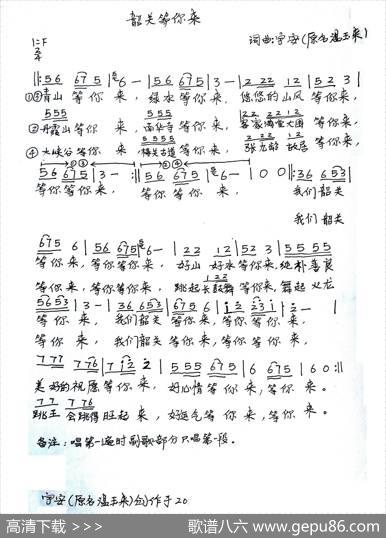 韶关等你来
1=F
2/4
词曲:字安(原名温玉来)
‖: 56 675 | 6 - | 56 675 | 3 - | 2 22 12 | 52 3 |
①③青山 等你 来, 绿水 等你 来, 悠悠的 山风 等你来,
555 555 122 222 122
②丹霞山 等你 来, 南华寺 等你 来, 客家满堂大围 等你来,
④大峡谷 等你 来, 梅关古道 等你来, 张九龄 故居 等你来,
56 675 | 3 - :‖ 56 675 | 6 - | 0 0 ‖: 36 653 |
等你 等你 来, 等你 等你 来, 我们 韶关
我们 韶关
6675 6 | 56 675 | 6 - | 22 12 | 52 3 | 55 55 |
等你 来, 等你等你 来, 好山 好水 等你来, 纯朴善良
等你 来, 等你等你 来, 跳起 长鼓舞 等你来, 舞起 火龙
5653 | 3 - | 36 653 | 675 6 | 12 231 | 2 - |
等你 来, 我们 韶关 等你来, 等你 等你 来,
等你 来, 我们 韶关 等你来, 等你 等你 来,
777 776 | 7 12 2 | 555 675 | 6 675 | 6 0 :‖
美好的 祝愿 等你 来, 好心情 等你 来, 等你 来。
77 776
跳王 会跳得 旺起 来, 好运气 等你 来, 等你 来。
备注:唱第一遍时副歌部分只唱第一段。
字安(原名温玉来)创作于20
高清下载 >>>
歌谱八六 www.gepu86.com